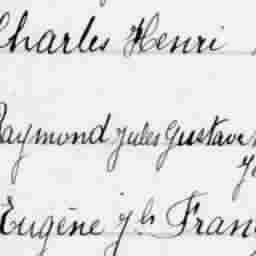 Charles Henri
Raymond Jules Gustave
Eugène jls Fran